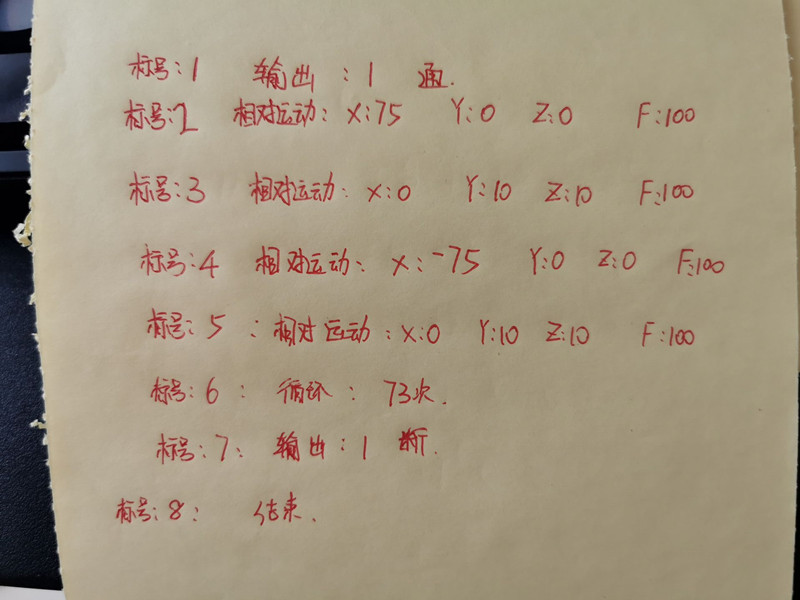 标号:1 输出:1 通.
标号:2 相对运动:X:75 Y:0 Z:0 F:100
标号:3 相对运动:X:0 Y:10 Z:10 F:100
标号:4 相对运动:X:-75 Y:0 Z:0 F:100
标号:5:相对运动:X:0 Y:10 Z:10 F:100
标号:6:循环:73次.
标号:7:输出:1 断.
标号:8:结束.